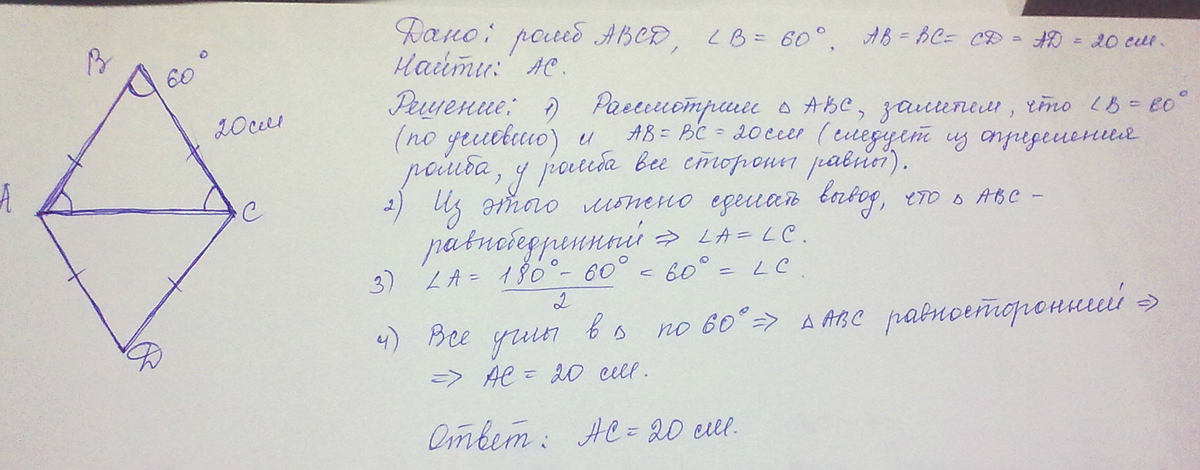 B
60°
20см
A
C
D
Дано: ромб ABCD, ∠B = 60°, AB = BC = CD = AD = 20 см.
Найти: AC.
Решение: 1) Рассмотрим △ ABC, заметим, что ∠B = 60°
(по условию) и AB = BC = 20см (следует из определения
ромба, у ромба все стороны равны).
2) Из этого можно сделать вывод, что △ ABC -
равнобедренный ⇒ ∠A = ∠C.
3) ∠A = (180° - 60°)/2 = 60° = ∠C.
4) Все углы в △ по 60° ⇒ △ ABC равносторонний ⇒
⇒ AC = 20 см.
Ответ: AC = 20 см.